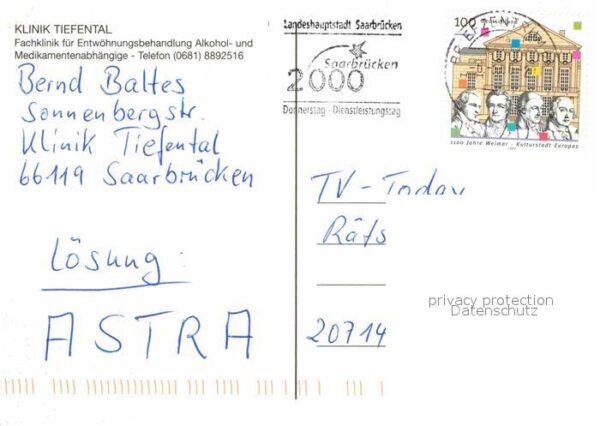 KLINIK TIEFENTAL
Fachklinik für Entwöhnungsbehandlung Alkohol- und
Medikamentenabhängige - Telefon (0681) 8892516
Bernd Baltes
Sonnenbergstr.
Klinik Tiefental
66119 Saarbrücken
Lösung:
ASTRA
Landeshauptstadt Saarbrücken
Saarbrücken
2000
Donnerstag - Dienstleistungstag
100
1100 Jahre Weimar - Kulturstadt Europas
TV-Today
Räts
20714
privacy protection
Datenschutz